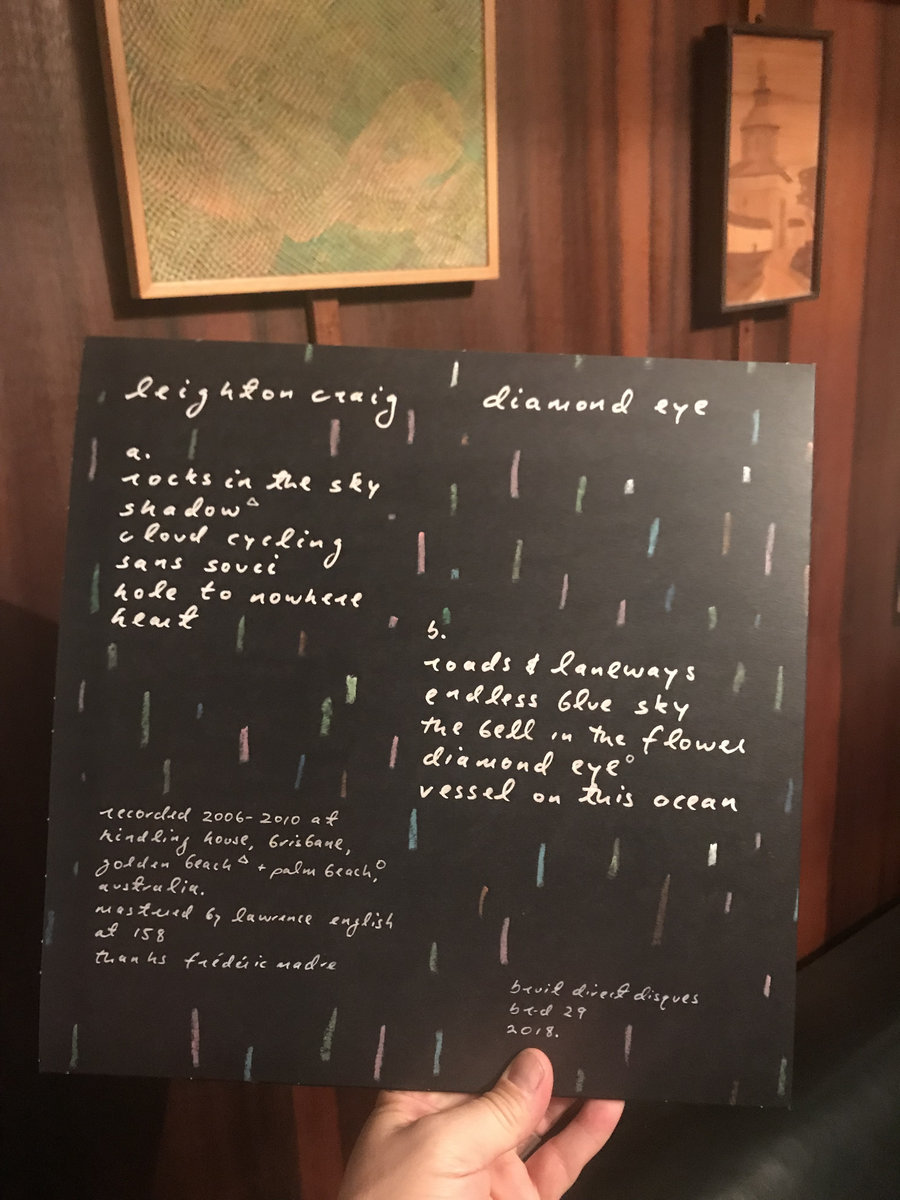 leighton craig
diamond eye
a.
rocks in the sky
shadow△
cloud cycling
sans souci
hole to nowhere
heart
b.
roads & laneways
endless blue sky
the bell in the flower
diamond eye°
vessel on this ocean
recorded 2006-2010 at
kindling house, brisbane,
golden beach△ + palm beach°,
australia.
mastered by lawrence english
at 158
thanks frédéric madre
bruit direct disques
br-d 29
2018.